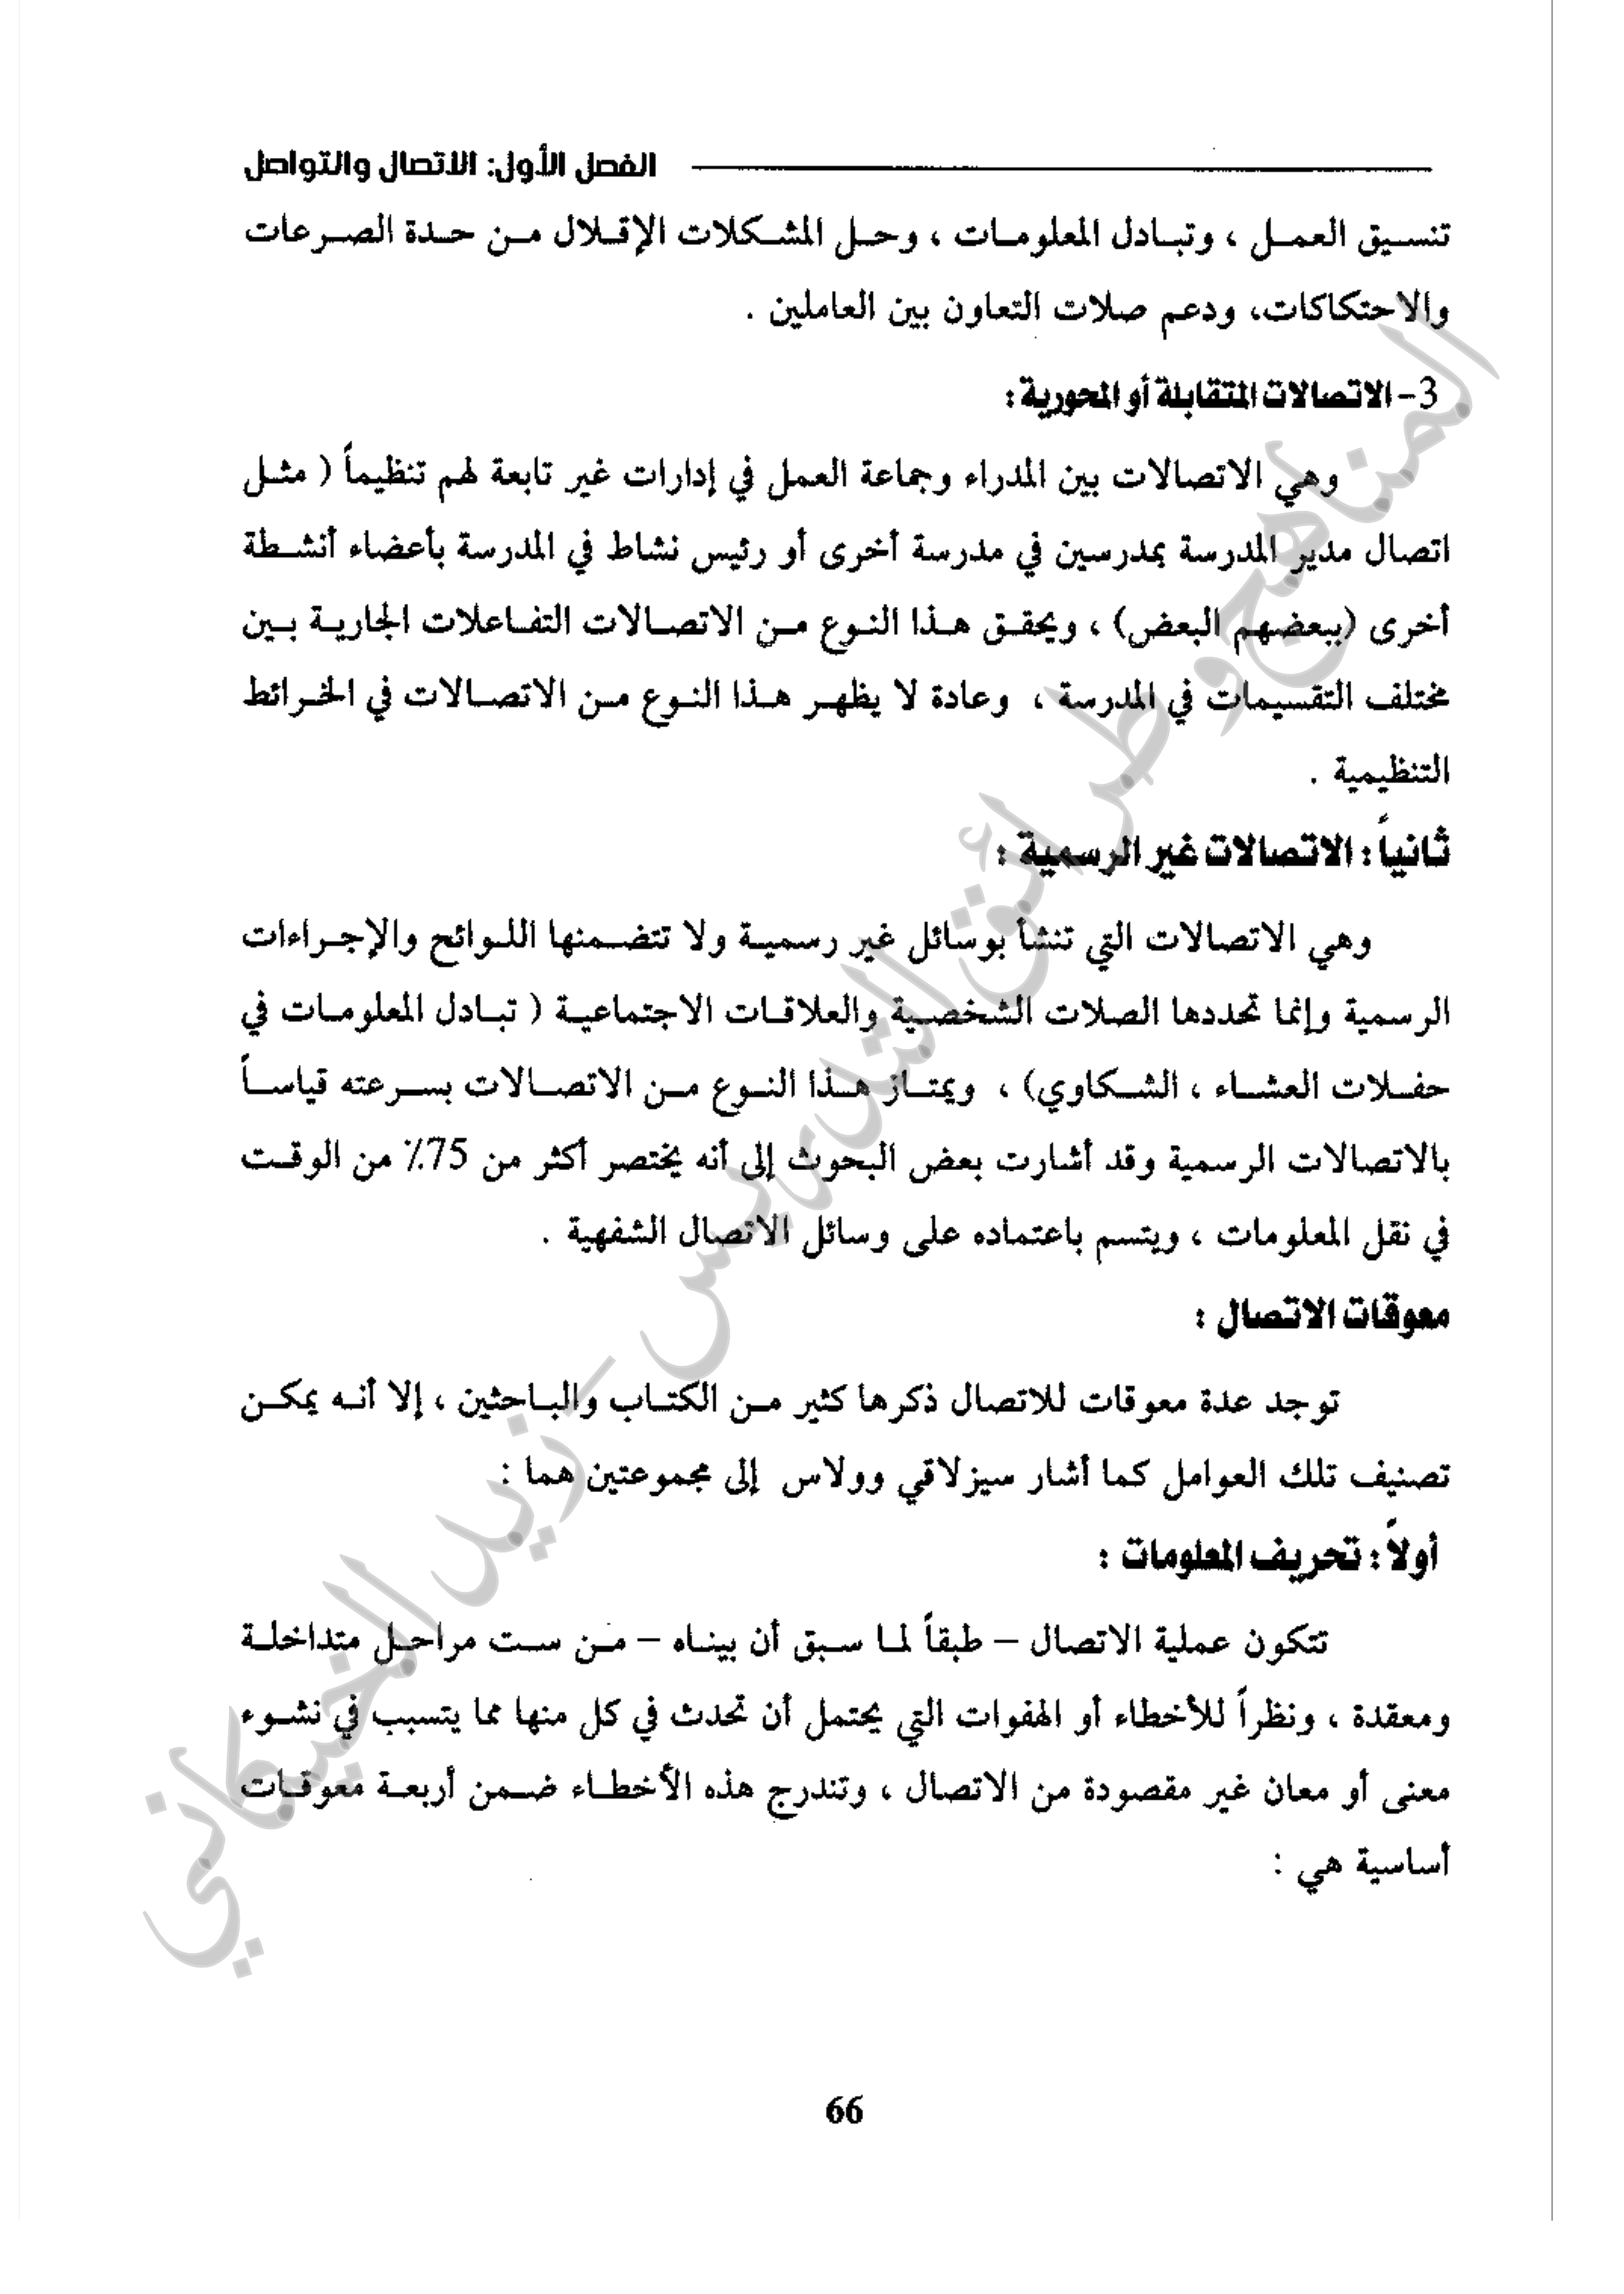 الفصل الأول: الاتصال والتواصل
تنسيق العمل ، وتبادل المعلومات ، وحل المشكلات الإقلال من حدة الصرعات
والاحتكاكات، ودعم صلات التعاون بين العاملين .
3- الاتصالات المتقابلة أو المحورية :
وهي الاتصالات بين المدراء وجماعة العمل في إدارات غير تابعة لهم تنظيماً ( مثل
اتصال مدير المدرسة بمدرسين في مدرسة أخرى أو رئيس نشاط في المدرسة بأعضاء أنشطة
أخرى (ببعضهم البعض) ، ويحقق هذا النوع من الاتصالات التفاعلات الجارية بين
مختلف التقسيمات في المدرسة ، وعادة لا يظهر هذا النوع من الاتصالات في الخرائط
التنظيمية .
ثانياً : الاتصالات غير الرسمية :
وهي الاتصالات التي تنشأ بوسائل غير رسمية ولا تتضمنها اللوائح والإجراءات
الرسمية وإنما تحددها الصلات الشخصية والعلاقات الاجتماعية ( تبادل المعلومات في
حفلات العشاء ، الشكاوي) ، ويمتاز هذا النوع من الاتصالات بسرعته قياساً
بالاتصالات الرسمية وقد أشارت بعض البحوث إلى أنه يختصر أكثر من 75٪ من الوقت
في نقل المعلومات ، ويتسم باعتماده على وسائل الاتصال الشفهية .
معوقات الاتصال :
توجد عدة معوقات للاتصال ذكرها كثير من الكتاب والباحثين ، إلا أنه يمكن
تصنيف تلك العوامل كما أشار سيزلاقي وولاس إلى مجموعتين هما :
أولاً : تحريف المعلومات :
تتكون عملية الاتصال – طبقاً لما سبق أن بيناه – من ست مراحل متداخلة
ومعقدة ، ونظراً للأخطاء أو الهفوات التي يحتمل أن تحدث في كل منها مما يتسبب في نشوء
معنى أو معان غير مقصودة من الاتصال ، وتندرج هذه الأخطاء ضمن أربعة معوقات
أساسية هي :
66
المناهج وطرائق التدريس - زيد الخيكاني